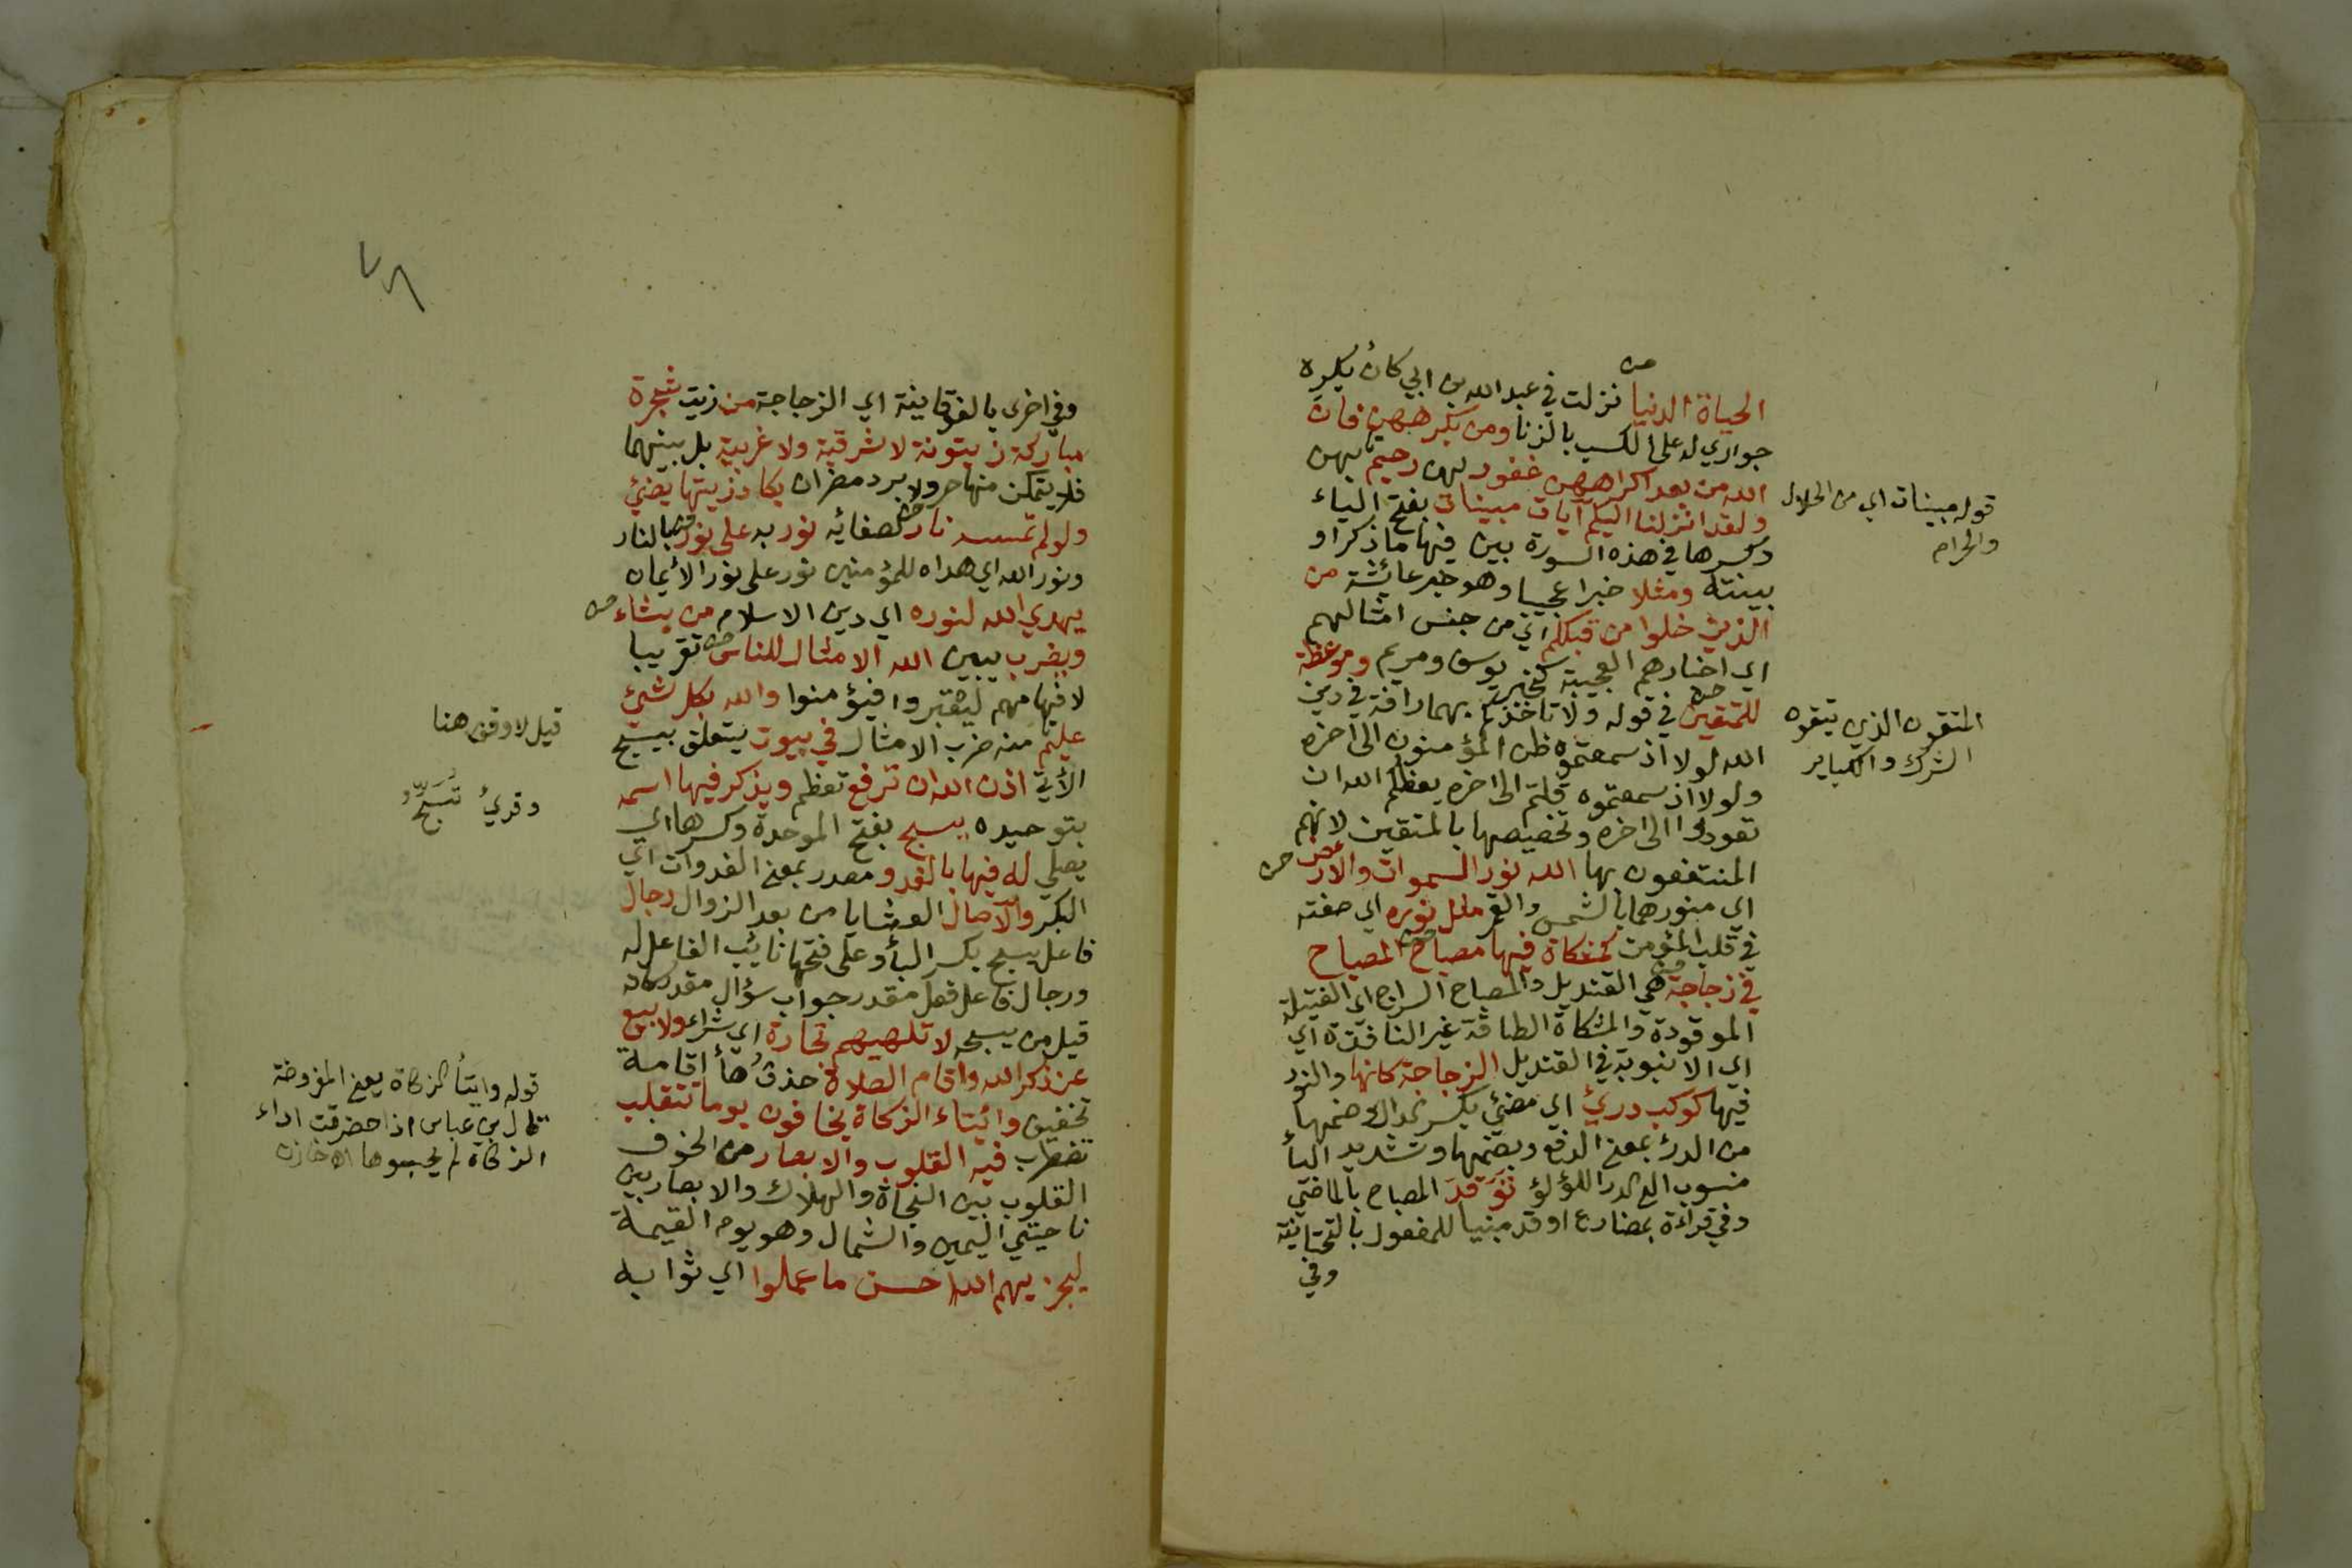 الحياة الدنيا نزلت في عبد الله بن ابي كان يكره
جواري له على الكسب بالزنا ومن يكرههن فان
الله من بعد اكراههن غفور لهن رحيم بهن
ولقد انزلنا اليكم آيات مبينات بفتح الياء
وكسرها في هذه السورة بين فيها ما ذكر او
بينته ومثلا خبرا عجيبا وهو خبر عائشة من
الذين خلوا من قبلكم اي من جنس امثالهم
اي اخبارهم العجيبة كخبر يوسف ومريم وموعظة
للمتقين في قوله ولا تاخذكم بهما رافة في دين
الله لولا اذ سمعتموه ظن المؤمنون الى اخره
ولولا اذ سمعتموه قلتم الى اخره يعظكم الله ان
تعودوا الى اخره وتخصيصها بالمتقين لانهم
المنتفعون بها الله نور السموات والارض
اي منورهما بالشمس والقمر مثل نوره اي صفته
في قلب المؤمن كمشكاة فيها مصباح المصباح
في زجاجة هي القنديل والمصباح السراج اي الفتيلة
الموقودة والمشكاة الطاقة غير النافذة اي
اي الانبوبة في القنديل الزجاجة كانها والنور
فيها كوكب دريّ اي مضيئ بكسر الدال وضمها
من الدرء بمعنى الدفع وبضمها وتشديد اليأ
منسوب الى الدر اللؤلؤ تَوَقدَ المصباح بالماضي
وفي قراءة بمضارع اوقد مبنيا للمفعول بالتحتانية
وفي
قوله مبينات اي من الحلال
والحرام
المتقون الذين يتقوه
الشرك والكباير
٧٨
وفي اخرى بالفوقانية اي الزجاجة من زيت شجرة
مباركة زيتونة لا شرقية ولا غربية بل بينهما
فلا يتمكن منها حر ولا برد مضران يكاد زيتها يضئ
ولو لم تمسسه نار لصفائه نور به على نور بالنار
ونور الله اي هداه للمؤمنين نور على نور الأيمان
يهدي الله لنوره اي دين الاسلام من يشاء
ويضرب يبين الله الامثال للناس تقريبا
لافهامهم ليعتبروا فيؤمنوا والله بكل شئ
عليم منه ضرب الامثال في بيوت يتعلق بيسبح
الأتي اذن الله ان ترفع تعظم ويذكر فيها اسمه
بتوحيده يسبح بفتح الموحدة وكسرها اي
يصلي له فيها بالغدو مصدر بمعنى الغدوات اي
البكر والآصال العشايا من بعد الزوال رجال
فاعل يسبح بكسر البأ وعلى فتحها نائب الفاعل له
ورجال فاعل فعل مقدر جواب سؤال مقدر كانه
قيل من يسبحه لا تلهيهم تجارة اي شراء ولا بيع
عن ذكر الله واقام الصلاة حذف هأ اقامة
تخفيف وائيتاء الزكاة يخافون يوما تتقلب
تضطرب فيه القلوب والابصار من الخوف
القلوب بين النجاة والهلاك والابصار بين
ناحيتي اليمين والشمال وهو يوم القيمة
ليجزيهم الله احسن ما عملوا اي ثوابه
قيل لا وقف هنا
وقرئ تسبح
قوله وايتأ الزكاة يعني المفروضة
قال بن عباس اذا حضرقت اداء
الزكاة لم يحبسوها